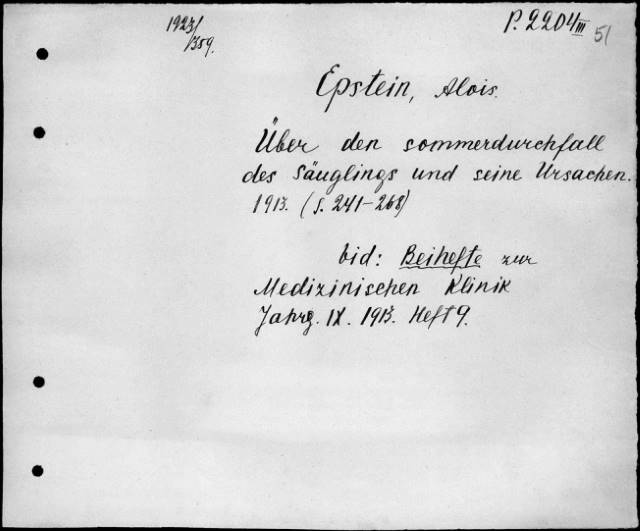 1923/
/359.
P. 2204 III
51
Epstein, Alois.
Über den sommerdurchfall
des Säuglings und seine Ursachen.
1913. (S. 241-268)
bid: Beihefte zur
Medizinischen Klinik
Jahrg. IX. 1913. Heft 9.